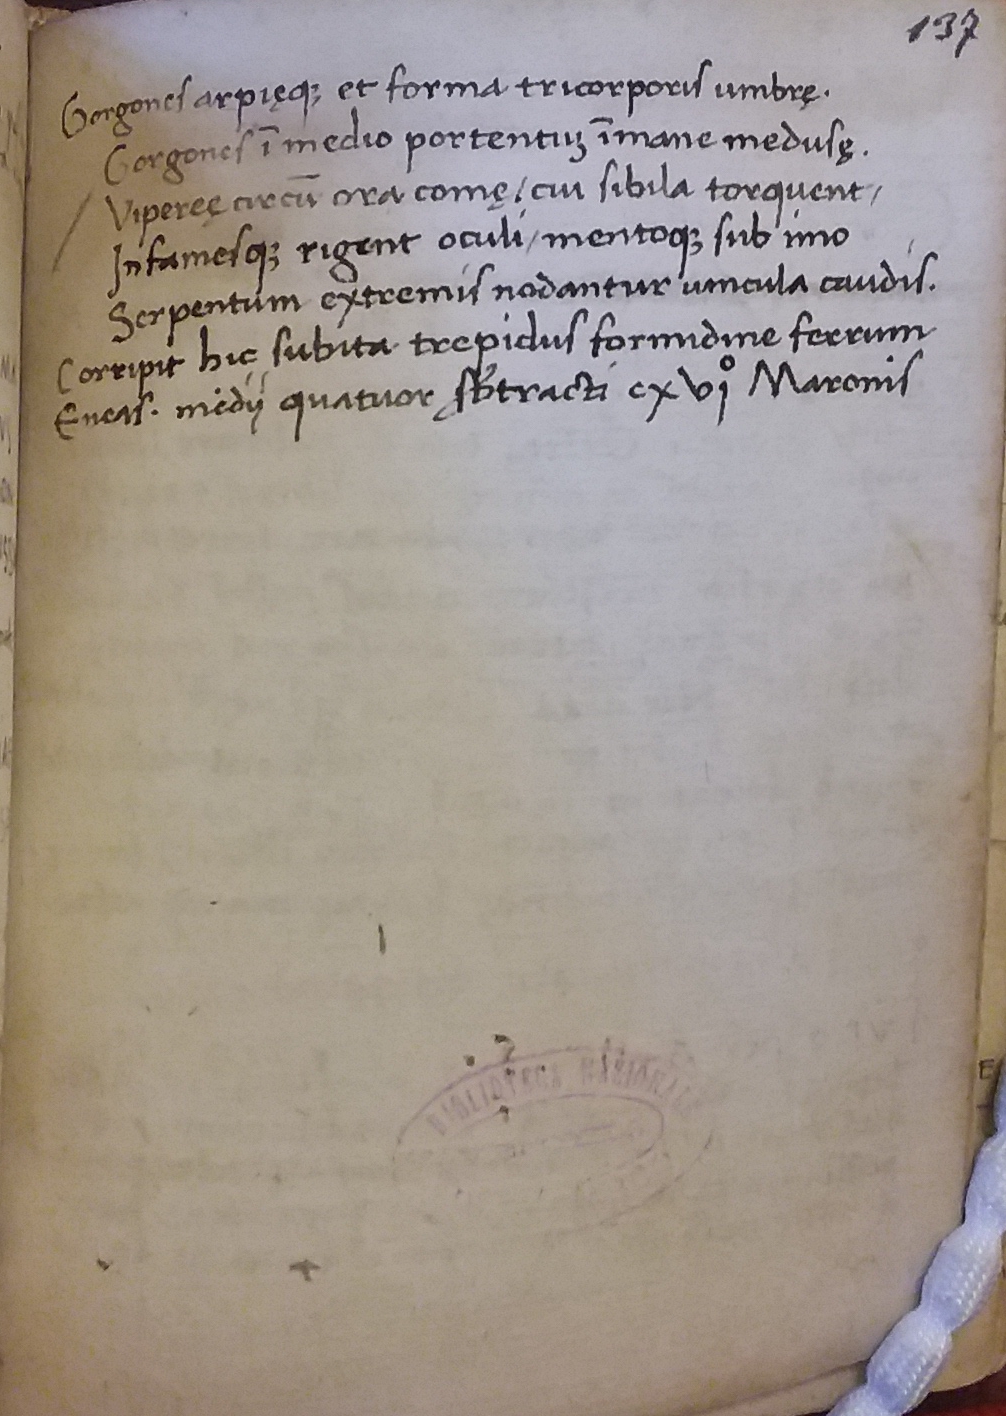 137
Gorgones arpięq; et forma tricorporis umbrę.
Gorgones ī medio portentuꝫ īmane medusę.
Vipereę circū ora comę / cui sibila torquent /
Infamesq; rigent oculi / mentoq; sub imo
Serpentum extremis nodantur uincula caudis.
Corripit hic subita trepidus formidine ferrum
Eneas. medij quatuor sbtracti ex vi° Maronis
BIBLIOTECA NAZIONALE